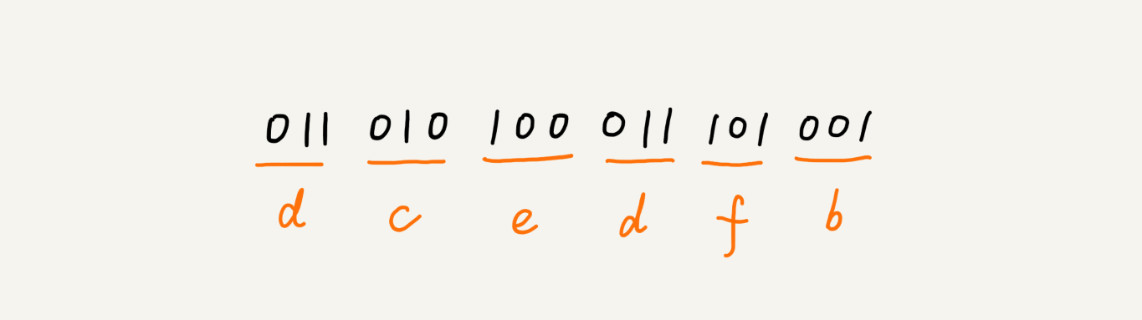 011 010 100 011 101 001
d c e d f b